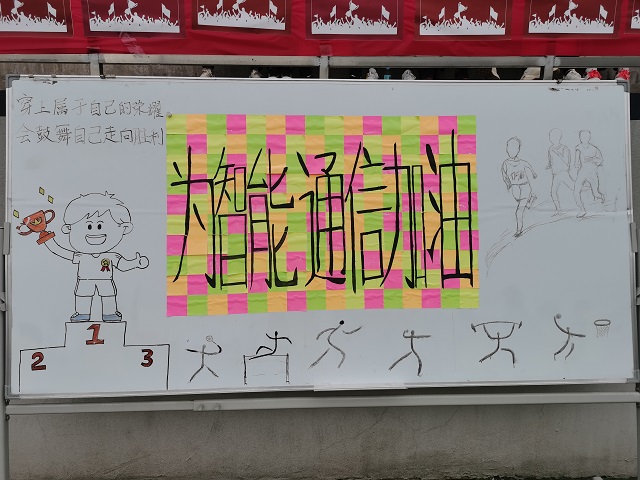 穿上属于自己的荣耀。
会鼓舞自己走向胜利
为智能通信加油
1
2
3